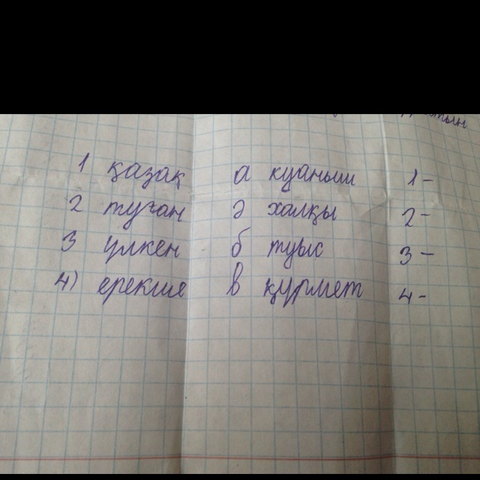 1 қазақ а қуаныш 1-
2 туған ә халқы 2-
3 үлкен б туыс 3-
4) ерекше в құрмет 4-